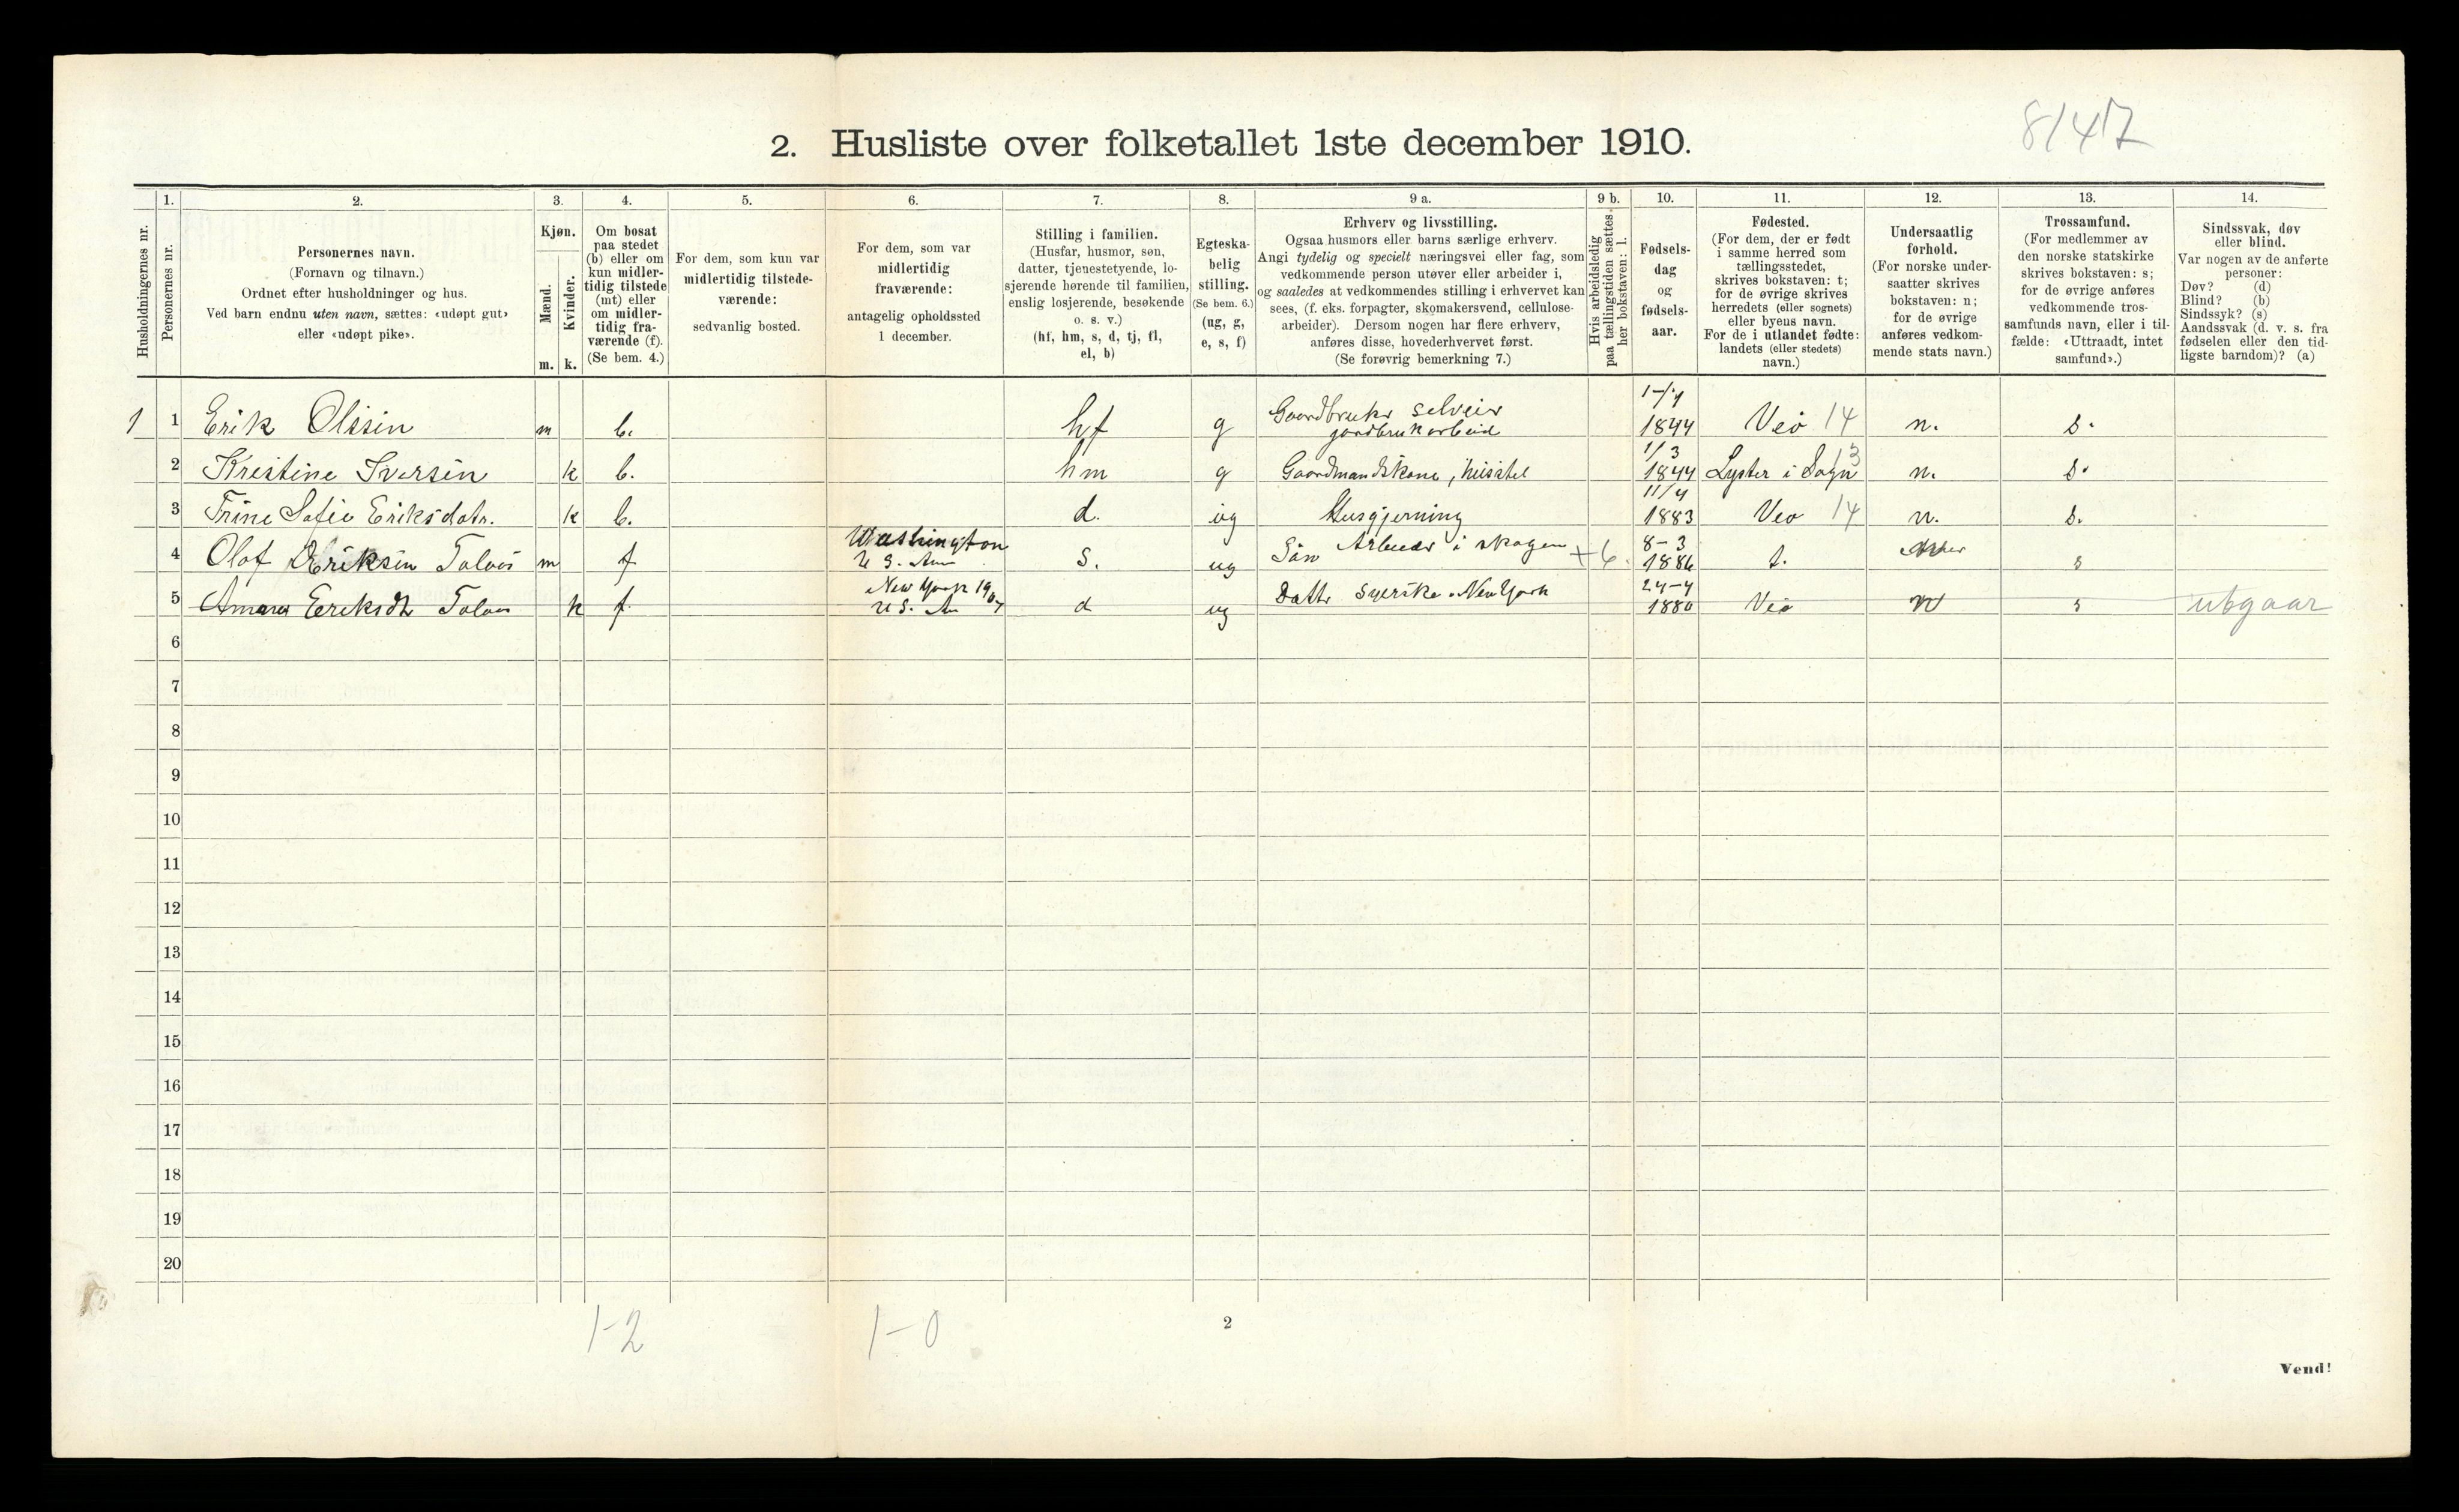 8/47
2. Husliste over folketallet 1ste december 1910.
Husholdningernes nr.
1.
Personernes nr.
2.
Personernes navn.
(Fornavn og tilnavn.)
Ordnet efter husholdninger og hus.
Ved barn endnu uten navn, sættes: «udøpt gut»
eller «udøpt pike».
3.
Kjøn.
Mænd.
Kvinder.
m. k.
4.
Om bosat
paa stedet
(b) eller om
kun midler-
tidig tilstede
(mt) eller
om midler-
tidig fra-
værende (f).
(Se bem. 4.)
5.
For dem, som kun var
midlertidig tilstede-
værende:
sedvanlig bosted.
6.
For dem, som var
midlertidig
fraværende:
antagelig opholdssted
1 december.
7.
Stilling i familien.
(Husfar, husmor, søn,
datter, tjenestetyende, lo-
sjerende hørende til familien,
enslig losjerende, besøkende
o. s. v.)
(hf, hm, s, d, tj, fl,
el, b)
8.
Egteska-
belig
stilling.
(Se bem. 6.)
(ug, g,
e, s, f)
9 a.
Erhverv og livsstilling.
Ogsaa husmors eller barns særlige erhverv.
Angi tydelig og specielt næringsvei eller fag, som
vedkommende person utøver eller arbeider i,
og saaledes at vedkommendes stilling i erhvervet kan
sees, (f. eks. forpagter, skomakersvend, cellulose-
arbeider). Dersom nogen har flere erhverv,
anføres disse, hovederhvervet først.
(Se forøvrig bemerkning 7.)
9 b.
Hvis arbeidsledig
paa tællingstiden sættes
her bokstaven: l.
10.
Fødsels-
dag
og
fødsels-
aar.
11.
Fødested.
(For dem, der er født
i samme herred som
tællingsstedet,
skrives bokstaven: t;
for de øvrige skrives
herredets (eller sognets)
eller byens navn.
For de i utlandet fødte:
landets (eller stedets)
navn.)
12.
Undersaatlig
forhold.
(For norske under-
saatter skrives
bokstaven: n;
for de øvrige
anføres vedkom-
mende stats navn.)
13.
Trossamfund.
(For medlemmer av
den norske statskirke
skrives bokstaven: s;
for de øvrige anføres
vedkommende tros-
samfunds navn, eller i til-
fælde: «Uttraadt, intet
samfund».)
14.
Sindssvak, døv
eller blind.
Var nogen av de anførte
personer:
Døv? (d)
Blind? (b)
Sindssyk? (s)
Aandssvak (d. v. s. fra
fødselen eller den tid-
ligste barndom)? (a)
1 1 Erik Olssin m b. hf g Gaardbruker selveier gardbrukarbeid 1844 Veø 14 n. s.
2 Kristine Iversen k b. hm g Gaardmandskone, husstel 1/3 1844 Lyster i Sogn 3 n. s.
3 Trine Sofie Eriksdatr. k b. d. ug Husgjerning 11/4 1883 Veø 14 n. s.
4 Olof Eriksen Tolaas m f Washington U S. Am s. ug Sön Arbeider i skogen + 6. 8-3 1886 t. s
5 Eriksdt Tolaas k f New York 1907 U S. Am d ug Dattr New York 24-4 1880 Veø n s utgaar
6
7
8
9
10
11
12
13
14
15
16
17
18
19
20
1-2 1-0
2
Vend!